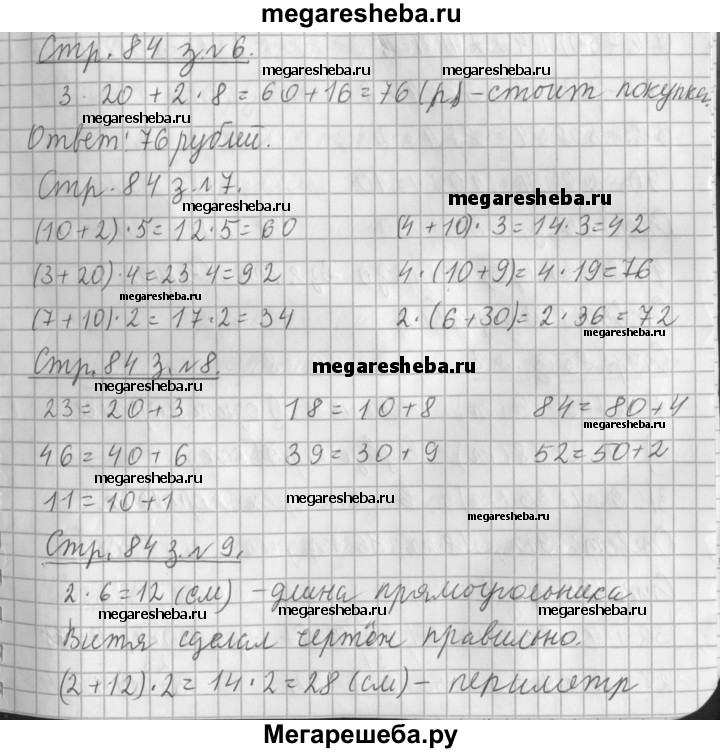 megaresheba.ru
Стр. 84 з. № 6.
megaresheba.ru megaresheba.ru
3 · 20 + 2 · 8 = 60 + 16 = 76 (р) - стоит покупка.
megaresheba.ru
Ответ: 76 рублей.
Стр. 84 з. № 7.
megaresheba.ru megaresheba.ru
(10 + 2) · 5 = 12 · 5 = 60 (4 + 10) · 3 = 14 · 3 = 42
(3 + 20) · 4 = 23 · 4 = 92 4 · (10 + 9) = 4 · 19 = 76
megaresheba.ru
(7 + 10) · 2 = 17 · 2 = 34 2 · (6 + 30) = 2 · 36 = 72
megaresheba.ru
Стр. 84 з. № 8. megaresheba.ru
megaresheba.ru
23 = 20 + 3 18 = 10 + 8 84 = 80 + 4
megaresheba.ru
46 = 40 + 6 39 = 30 + 9 52 = 50 + 2
megaresheba.ru
11 = 10 + 1 megaresheba.ru
megaresheba.ru
Стр. 84 з. № 9.
2 · 6 = 12 (см) - длина прямоугольника
megaresheba.ru megaresheba.ru megaresheba.ru
Витя сделал чертёж правильно.
(2 + 12) · 2 = 14 · 2 = 28 (см) - периметр
Мегарешеба.ру